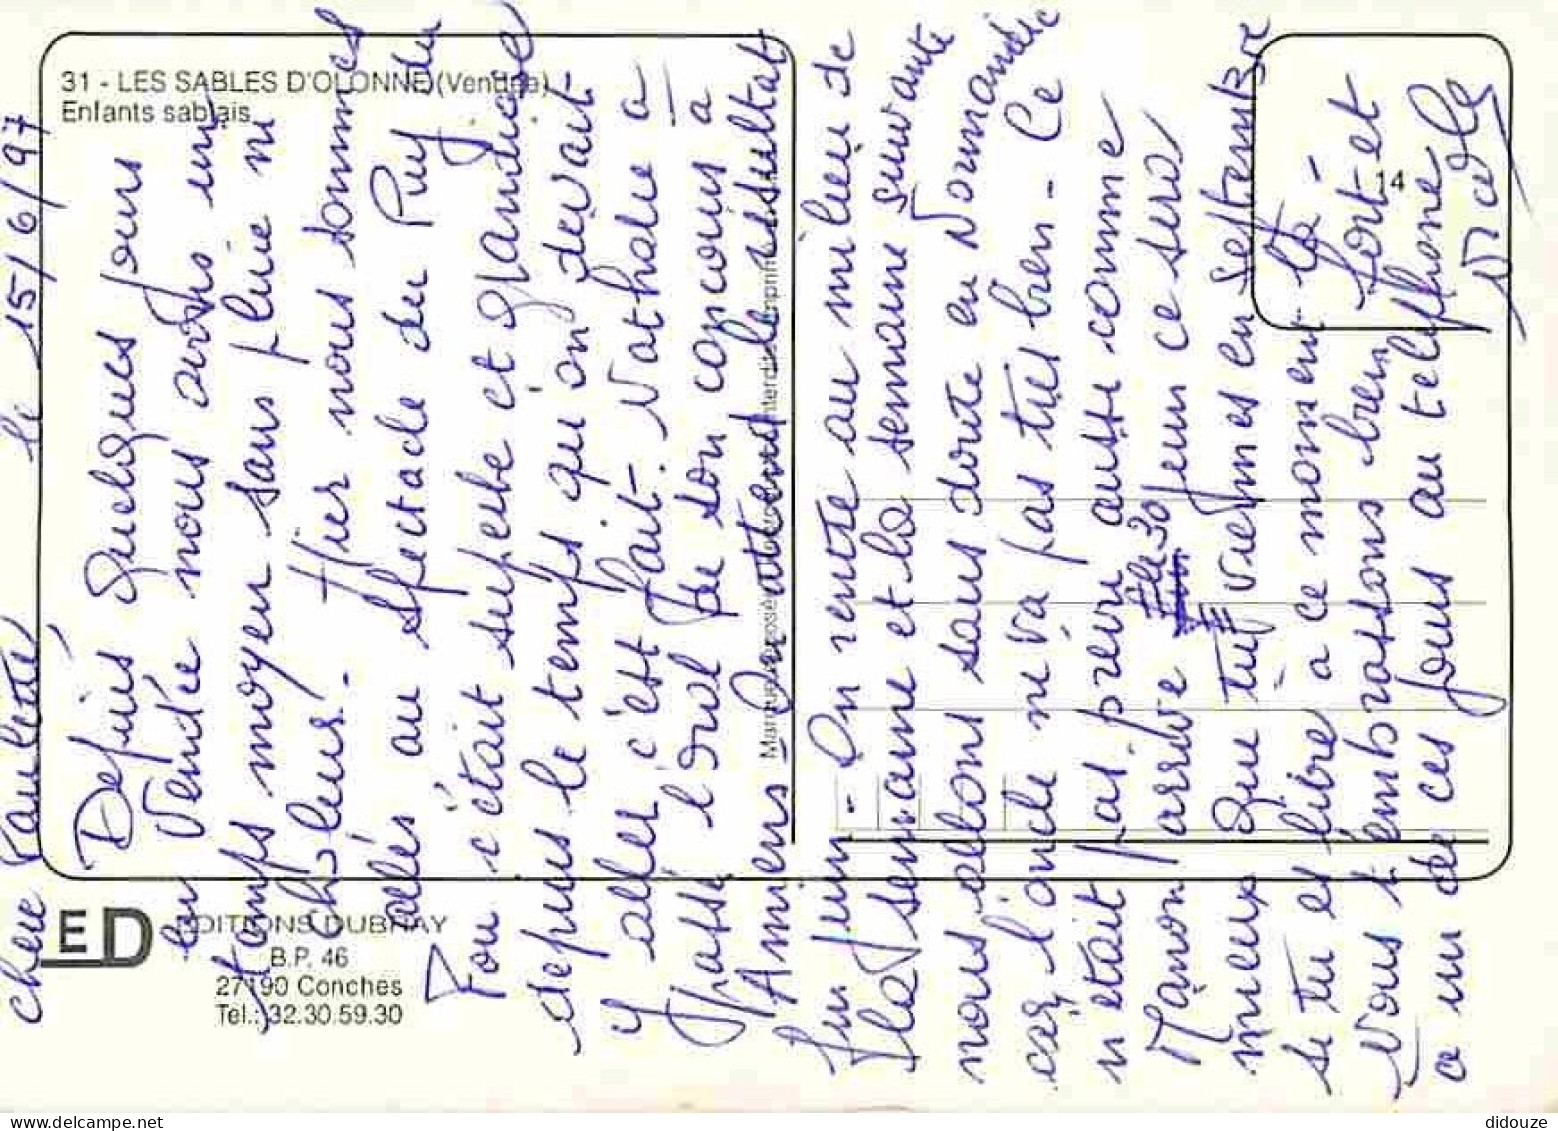 31 - LES SABLES D'OLONNE (Vendée)
Enfants sablais
14
ED
EDITIONS DUBRAY
B.P. 46
27190 Conches
Tél.: 32.30.59.30
le 15/6/97
chère Paulette
Depuis quelques jours
en Vendée nous avons un
temps moyen sans pluie ni
chaleur. Hier nous sommes
allés au spectacle du Puy du
Fou c'était superbe et grandiose
depuis le temps qu'on devait
y aller c'est fait. Nathalie a
passé l'oral de son concours à
Amiens on attend le résultat
fin juin - On rentre au milieu de
la semaine et la semaine suivante
nous allons sans doute en Normandie
car l'oncle ne va pas très bien - Ce
n'était pas prévu aussi comme
Manon arrive le 30 juin ce sera
mieux que tu viennes en septembre
si tu es libre à ce moment là -
Nous t'embrassons bien fort et
a un de ces jours au téléphone
Nicole
didouze